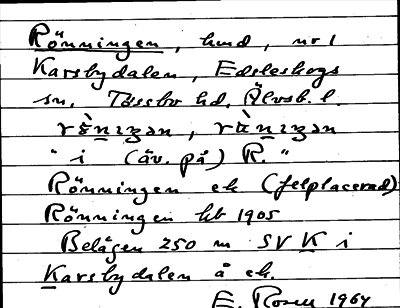 Rönningen, hmd, nr 1
Karsbydalen, Edsleskogs
sn, Tössbo hd, Älvsb. l.
"i (äv. på) R."
Rönningen ek (felplacerad)
Rönningen hb 1905
Belägen 250 m SV K i
Karsbydalen å ek.
E. Rosell 1964